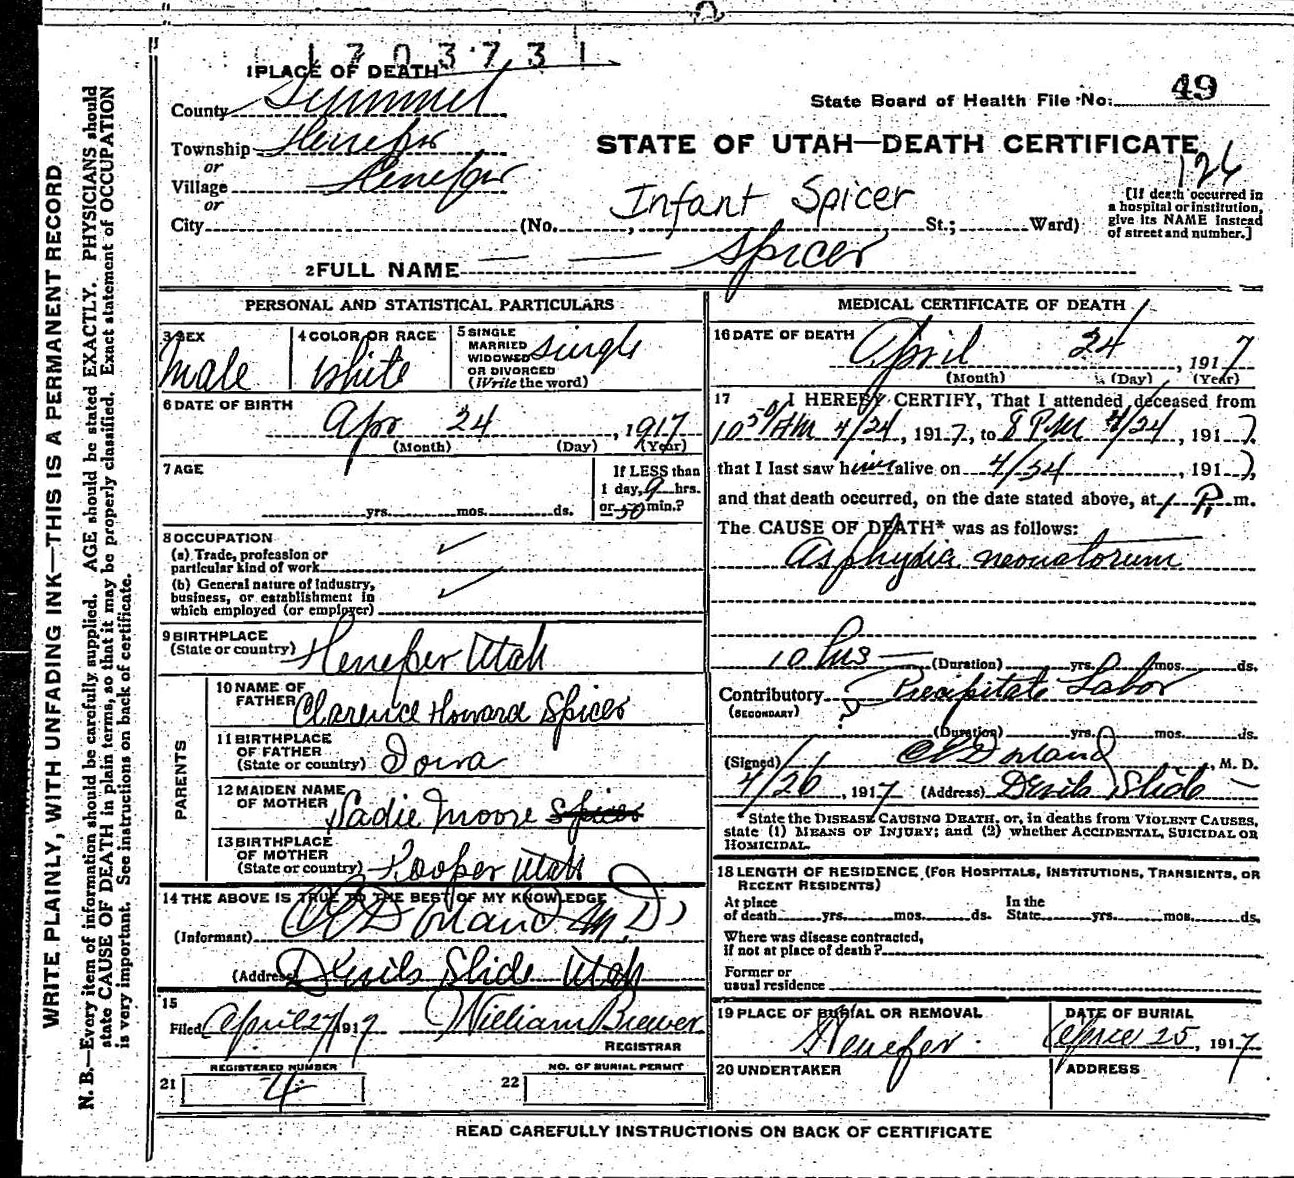 1703731
1 PLACE OF DEATH
County Summit
Township Henefer
or
Village Henefer
or
City (No. , St.; Ward)
State Board of Health File No. 49
STATE OF UTAH—DEATH CERTIFICATE
126
[If death occurred in a hospital or institution, give its NAME instead of street and number.]
Infant Spicer
2 FULL NAME — — Spicer
PERSONAL AND STATISTICAL PARTICULARS
3 SEX
Male
4 COLOR OR RACE
White
5 SINGLE
MARRIED
WIDOWED
OR DIVORCED
(Write the word)
single
6 DATE OF BIRTH
Apr 24, 1917
(Month) (Day) (Year)
7 AGE
yrs. mos. ds.
If LESS than
1 day, 9 hrs.
or 50 min.?
8 OCCUPATION
(a) Trade, profession or
particular kind of work
(b) General nature of industry,
business, or establishment in
which employed (or employer)
9 BIRTHPLACE
(State or country) Henefer Utah
PARENTS
10 NAME OF
FATHER Clarence Howard Spicer
11 BIRTHPLACE
OF FATHER
(State or country) Iowa
12 MAIDEN NAME
OF MOTHER Sadie Moore Spicer
13 BIRTHPLACE
OF MOTHER
(State or country) Hooper Utah
14 THE ABOVE IS TRUE TO THE BEST OF MY KNOWLEDGE
(Informant) Dorland M.D.
(Address) Devils Slide Utah
15
Filed April 27 1917 William Brewer
REGISTRAR
21 REGISTERED NUMBER
4
22 NO. OF BURIAL PERMIT
MEDICAL CERTIFICATE OF DEATH
16 DATE OF DEATH
April 24, 1917
(Month) (Day) (Year)
17 I HEREBY CERTIFY, That I attended deceased from
10 50 AM 4/24, 1917, to 8 PM 4/24, 1917,
that I last saw him alive on 4/24, 1917,
and that death occurred, on the date stated above, at P. m.
The CAUSE OF DEATH* was as follows:
Asphyxia neonatorum
10 hrs — (Duration) yrs. mos. ds.
Contributory ? Precipitate Labor
(SECONDARY)
(Duration) yrs. mos. ds.
(Signed) Dorland, M. D.
4/26, 1917 (Address) Devils Slide
*State the DISEASE CAUSING DEATH, or, in deaths from VIOLENT CAUSES,
state (1) MEANS OF INJURY; and (2) whether ACCIDENTAL, SUICIDAL OR
HOMICIDAL.
18 LENGTH OF RESIDENCE (FOR HOSPITALS, INSTITUTIONS, TRANSIENTS, OR
RECENT RESIDENTS)
At place In the
of death yrs. mos. ds. State yrs. mos. ds.
Where was disease contracted,
if not at place of death?
Former or
usual residence
19 PLACE OF BURIAL OR REMOVAL
Henefer
DATE OF BURIAL
April 25, 1917
20 UNDERTAKER
ADDRESS
READ CAREFULLY INSTRUCTIONS ON BACK OF CERTIFICATE
WRITE PLAINLY, WITH UNFADING INK—THIS IS A PERMANENT RECORD
N. B.—Every item of information should be carefully supplied. AGE should be stated EXACTLY. PHYSICIANS should
state CAUSE OF DEATH in plain terms, so that it may be properly classified. Exact statement of OCCUPATION
is very important. See instructions on back of certificate.